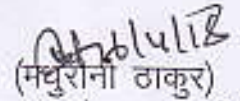 16/4/18
(मधुरानी ठाकुर)